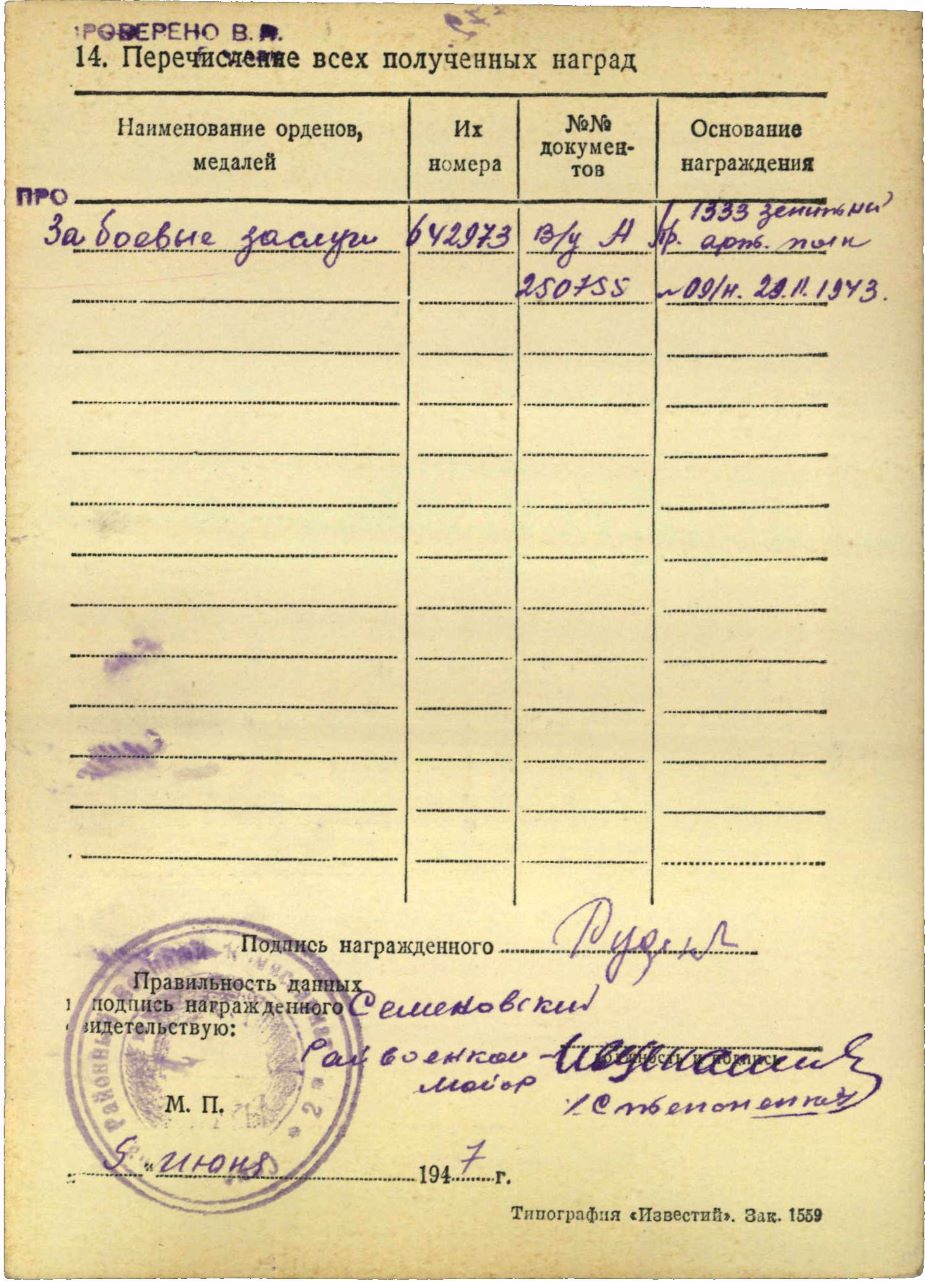 РОВЕРЕНО В. Л.
14. Перечисление всех полученных наград
Наименование орденов, медалей
Их номера
№№ докумен-тов
Основание награждения
ПРО
За боевые заслуги 642973 в/у А Пр. 1333 зенитный
арт. полк
250755 09/н. 29.11.1943.
Подпись награжденного
Правильность данных
подпись награжденного Семеновский
свидетельствую:
Райвоенком
должность и подпись
майор
/Степаненко/
М. П.
5 " июня 1947 г.
Типография «Известий». Зак. 1559